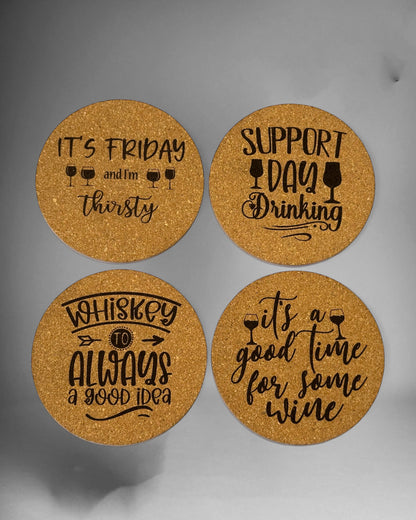 IT'S FRIDAY
and I'm
thirsty
SUPPORT
DAY
Drinking
WHISKEY
TO
ALWAYS
A GOOD IDEA
it's a
good time
for some
wine